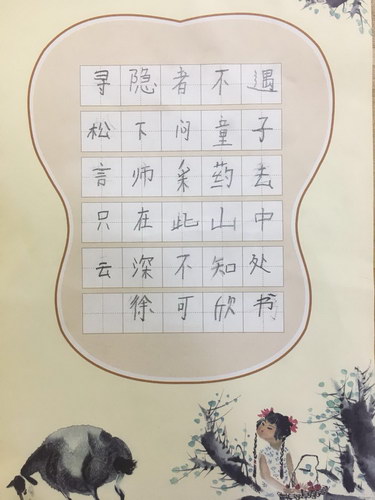 寻隐者不遇
松下问童子
言师采药去
只在此山中
云深不知处
徐可欣书